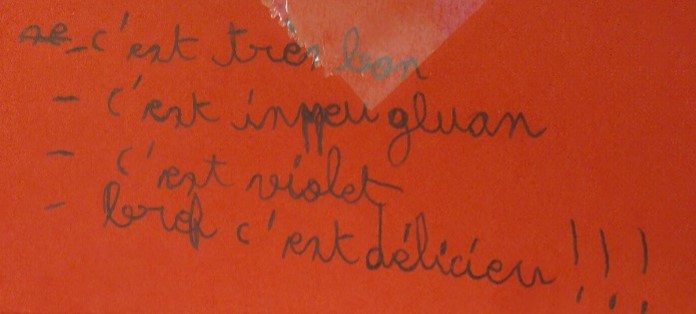 - c'est tres bon
- c'est inppeu gluan
- c'est violet
- bref c'est délicieu !!!